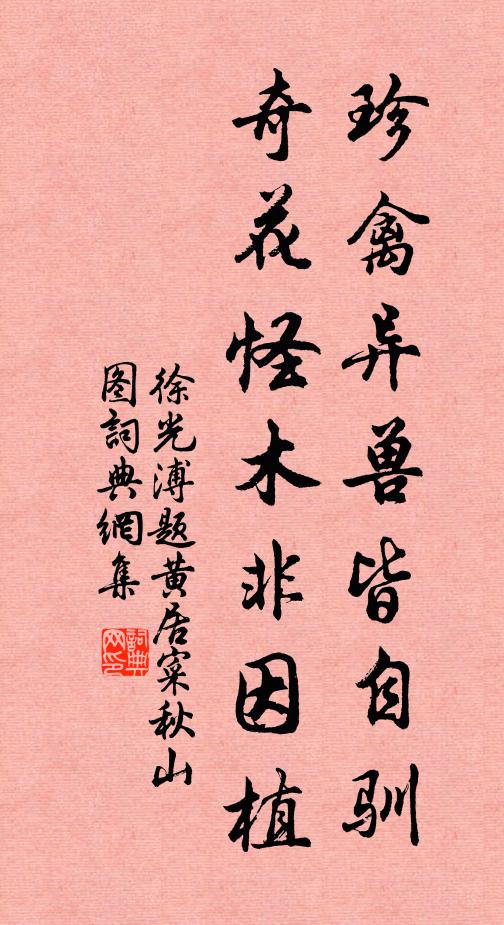 珍禽异兽皆自驯
奇花怪木非因植
徐光溥题黄居寀秋山
图詞典網集
詞典网印